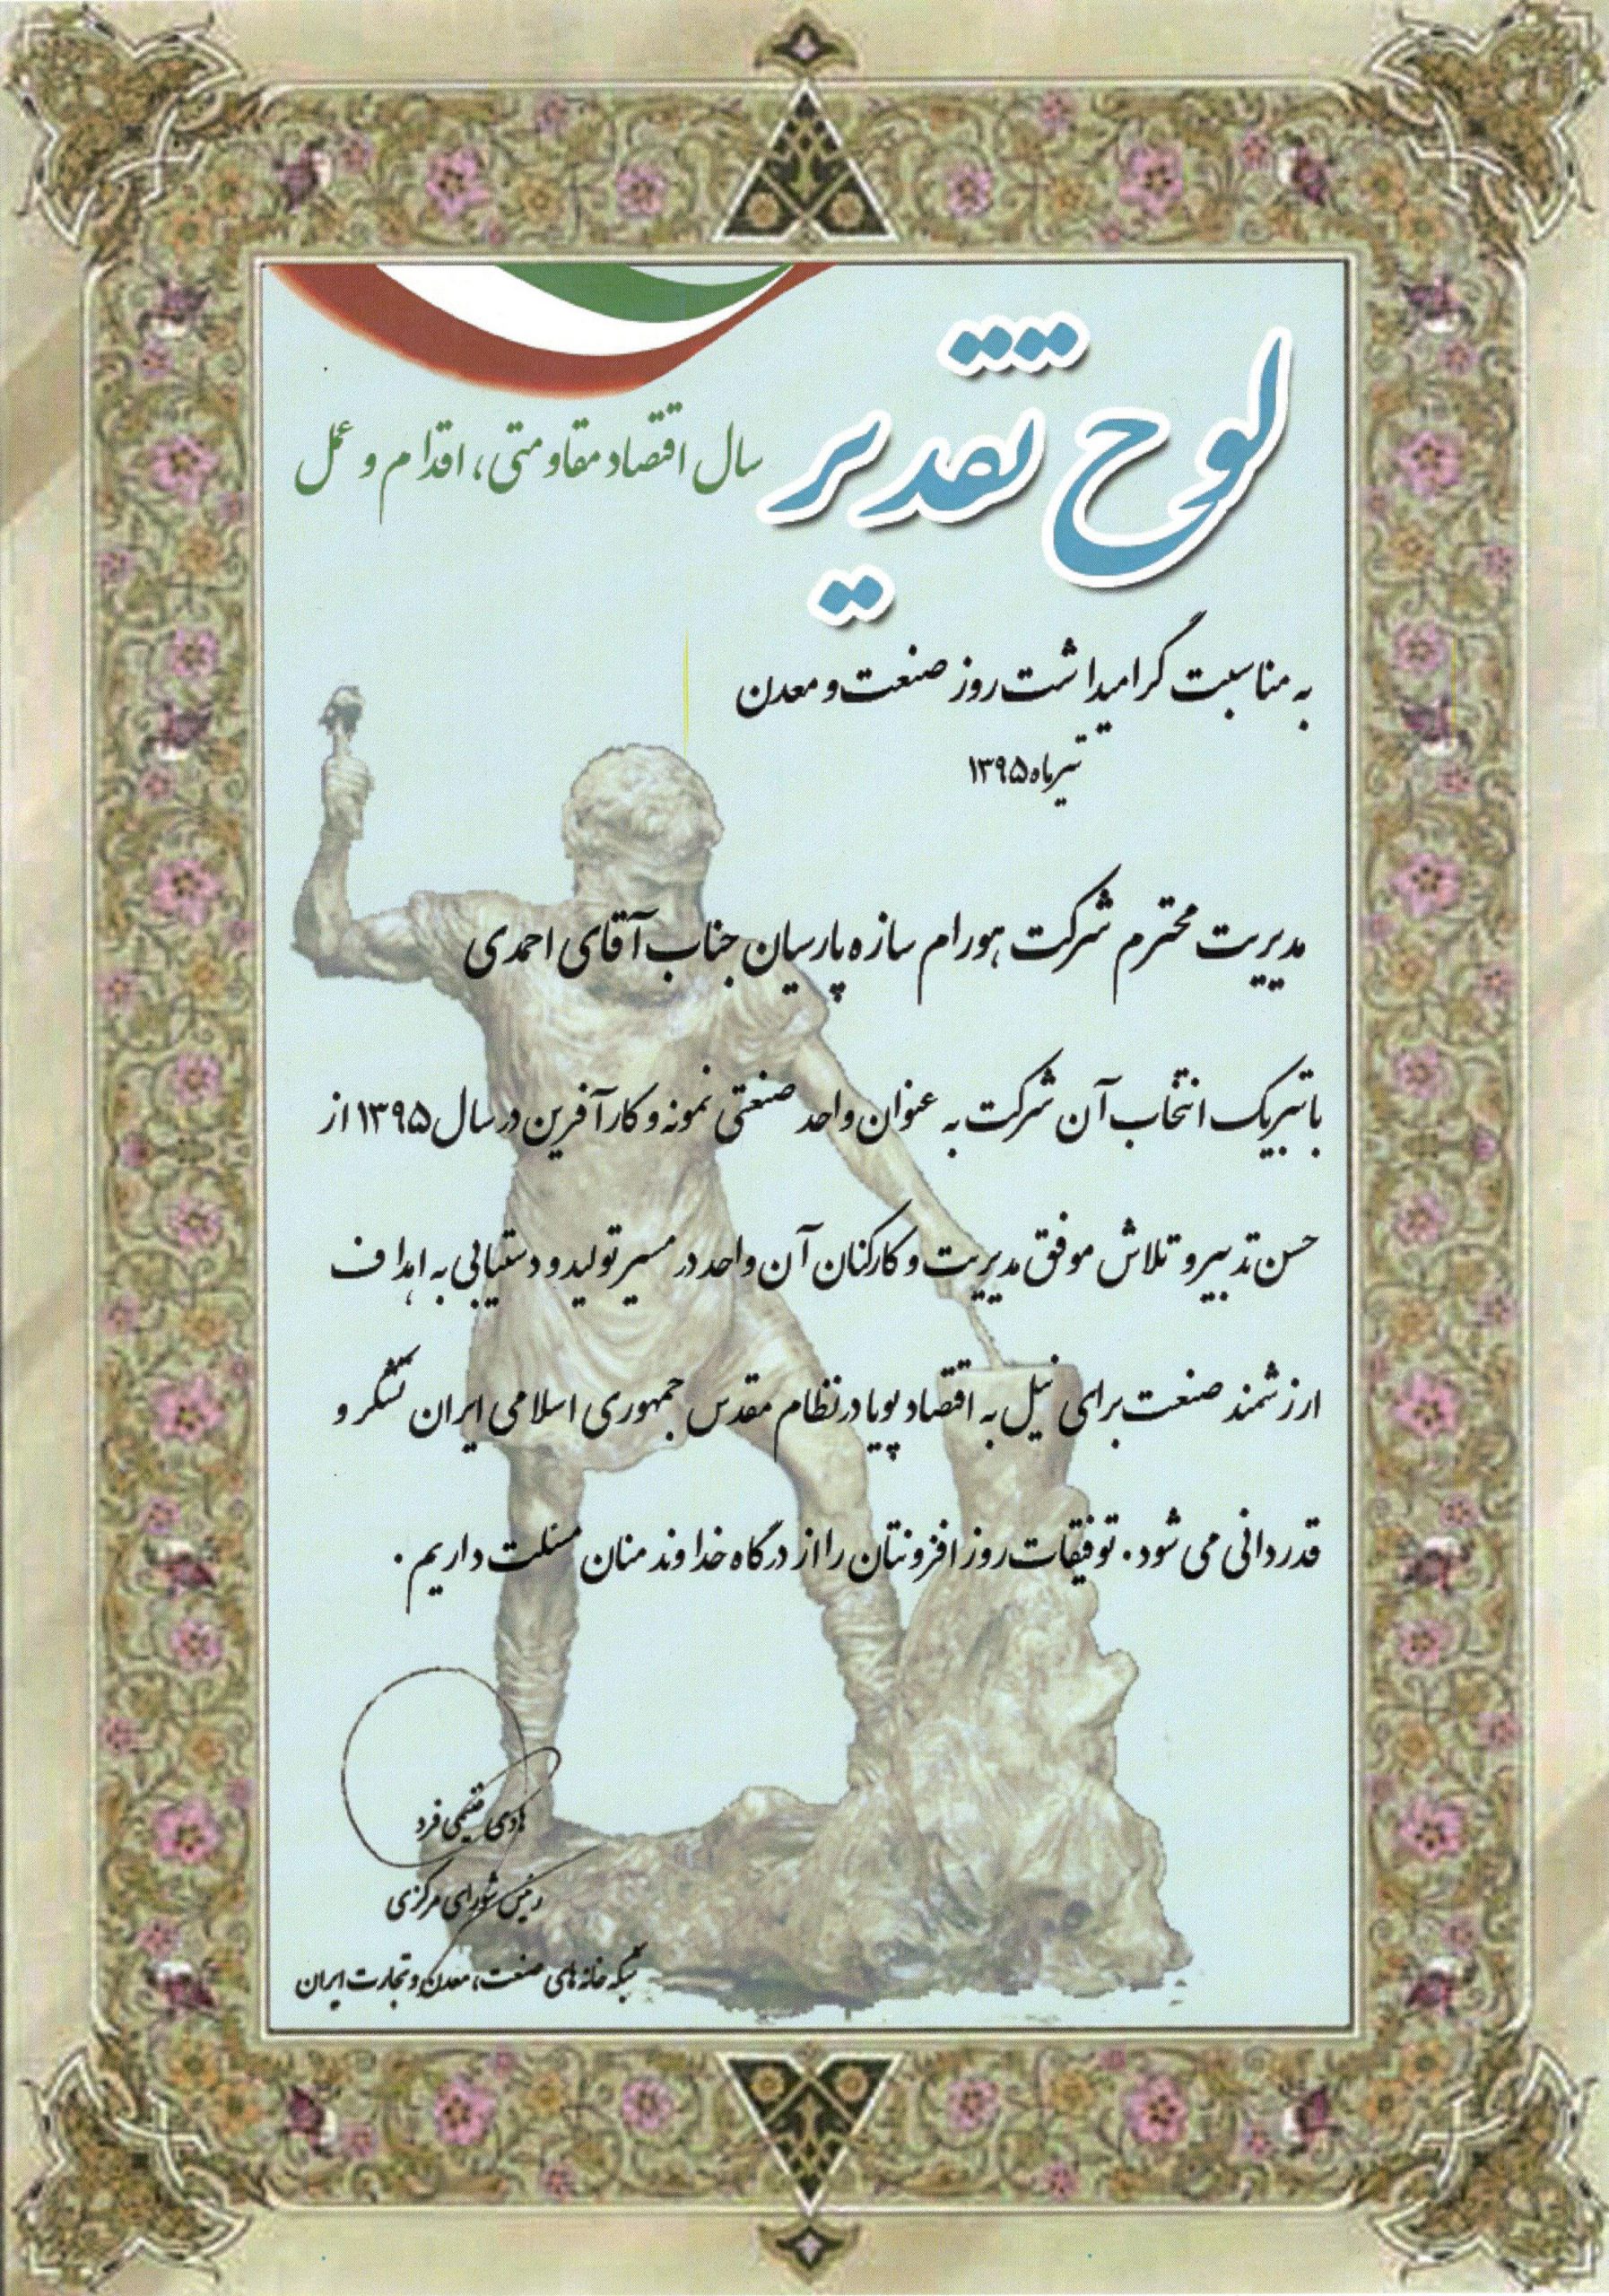 لوح تقدیر
سال اقتصاد مقاومتی، اقدام و عمل
به مناسبت گرامیداشت روز صنعت و معدن
تیرماه ۱۳۹۵
مدیریت محترم شرکت هورام سازه پارسیان جناب آقای احمدی
با تبریک انتخاب آن شرکت به عنوان واحد صنعتی نمونه و کارآفرین در سال ۱۳۹۵ از
حسن تدبیر و تلاش موفق مدیریت و کارکنان آن واحد در مسیر تولید و دستیابی به اهداف
ارزشمند صنعت برای نیل به اقتصاد پویا در نظام مقدس جمهوری اسلامی ایران تشکر و
قدردانی می شود. توفیقات روز افزونتان را از درگاه خداوند منان مسئلت داریم.
هادی مقیمی فرد
رئیس شورای مرکزی
شبکه خانه های صنعت، معدن و تجارت ایران